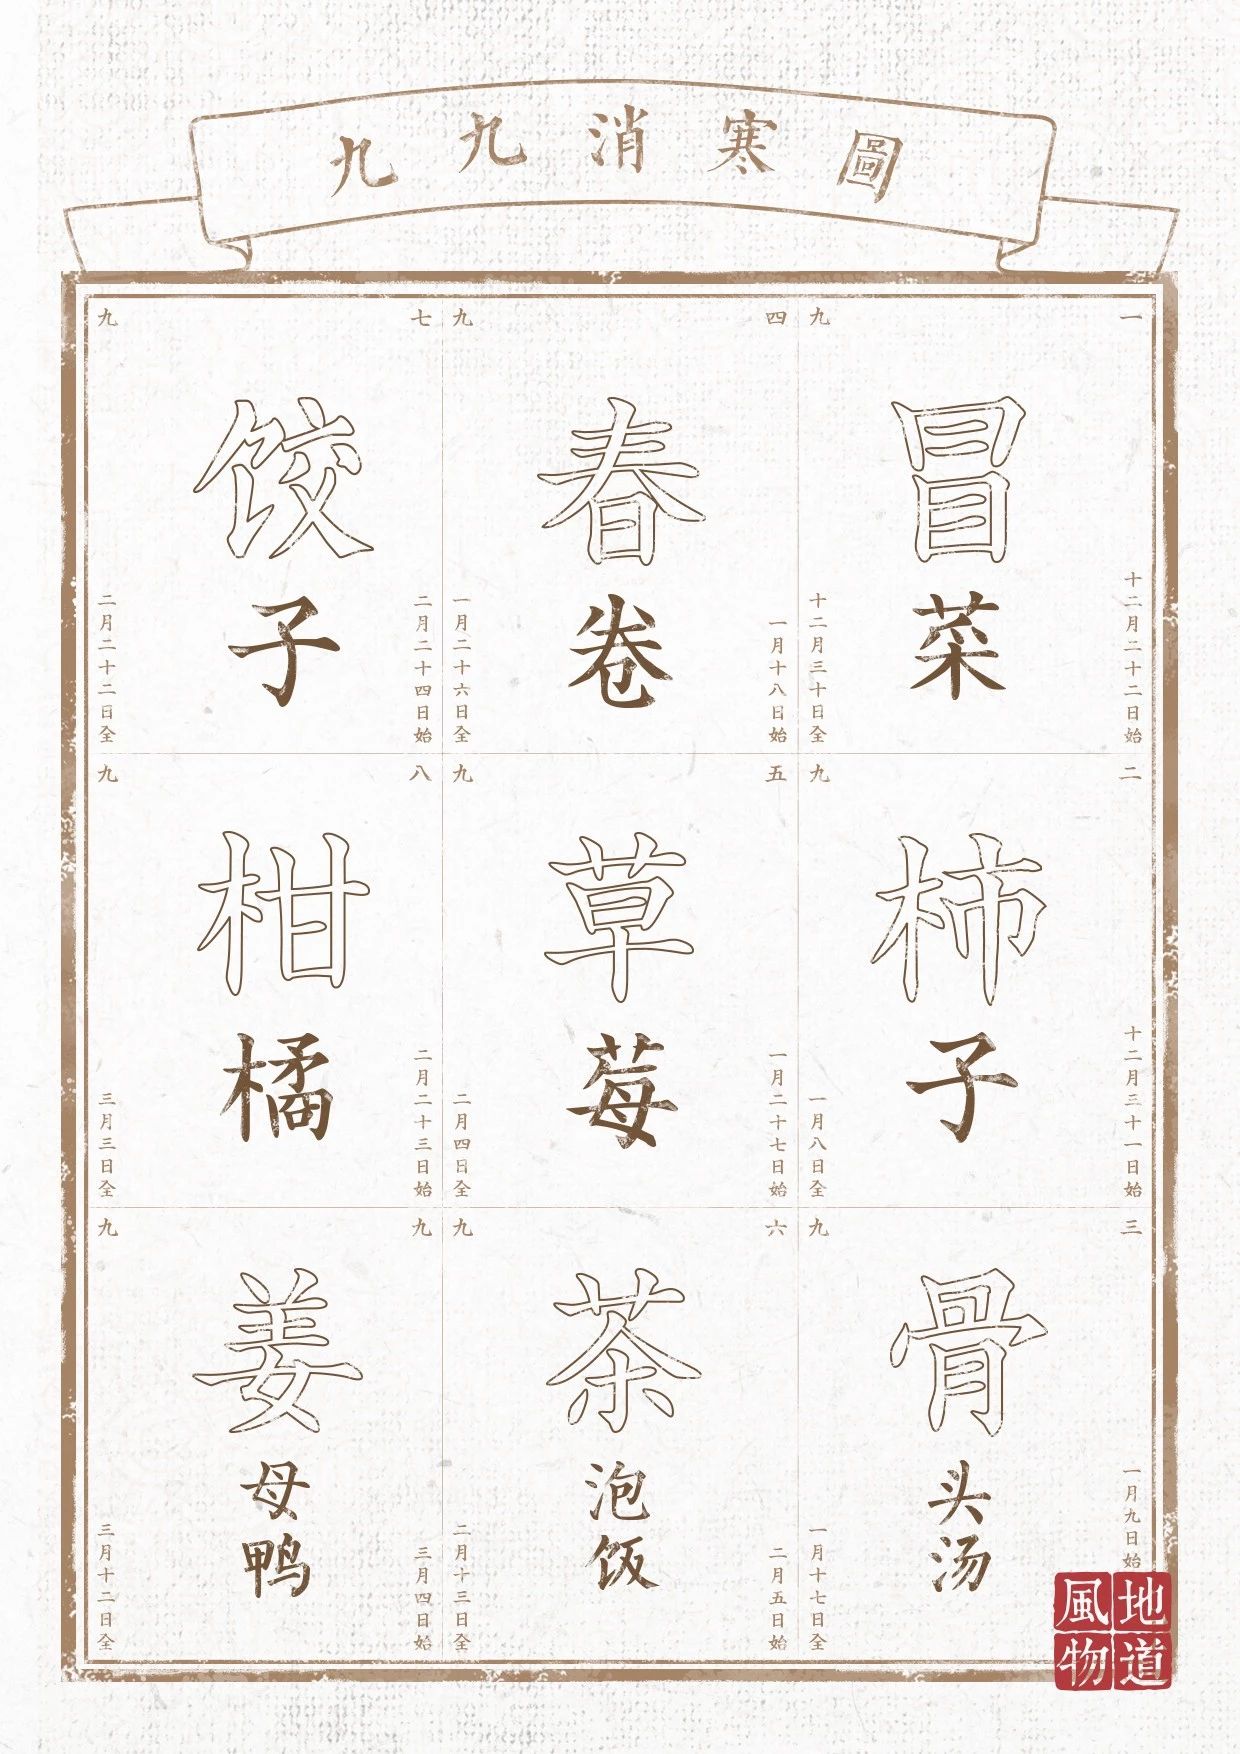 九九消寒圖
一九
十二月二十二日始
冒菜
十二月三十日全
二九
十二月三十一日始
柿子
一月八日全
三九
一月九日始
骨头汤
一月十七日全
四九
一月十八日始
春卷
一月二十六日全
五九
一月二十七日始
草莓
二月四日全
六九
二月五日始
茶泡饭
二月十三日全
七九
二月二十四日始
饺子
二月二十二日全
八九
二月二十三日始
柑橘
三月三日全
九九
三月四日始
姜母鸭
三月十二日全
地道
風物